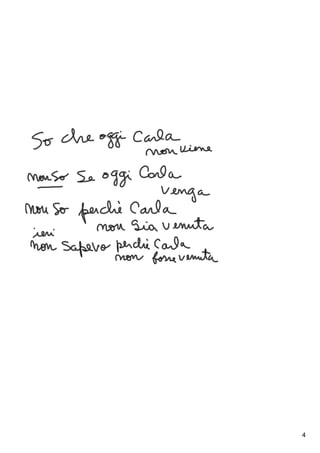 So che oggi Carla
non viene
non so se oggi Carla
venga
non so perchè Carla
non sia venuta
ieri
non sapevo perchè Carla
non fosse venuta
4